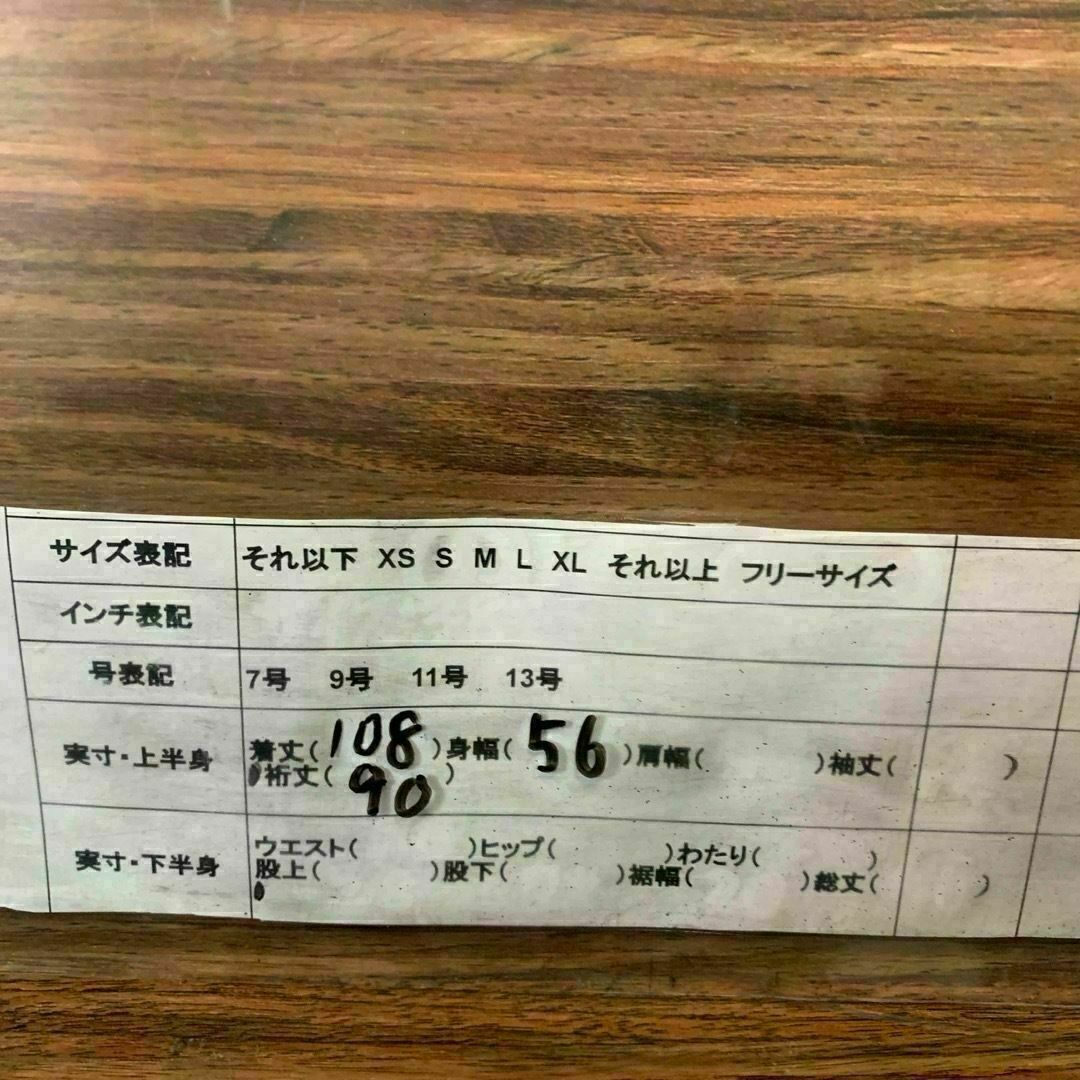 サイズ表記 それ以下 XS S M L XL それ以上 フリーサイズ
インチ表記
号表記 7号 9号 11号 13号
実寸・上半身 着丈(108)身幅(56)肩幅( )袖丈( )
裄丈(90)
実寸・下半身 ウエスト( )ヒップ( )わたり( )
股上( )股下( )裾幅( )総丈( )